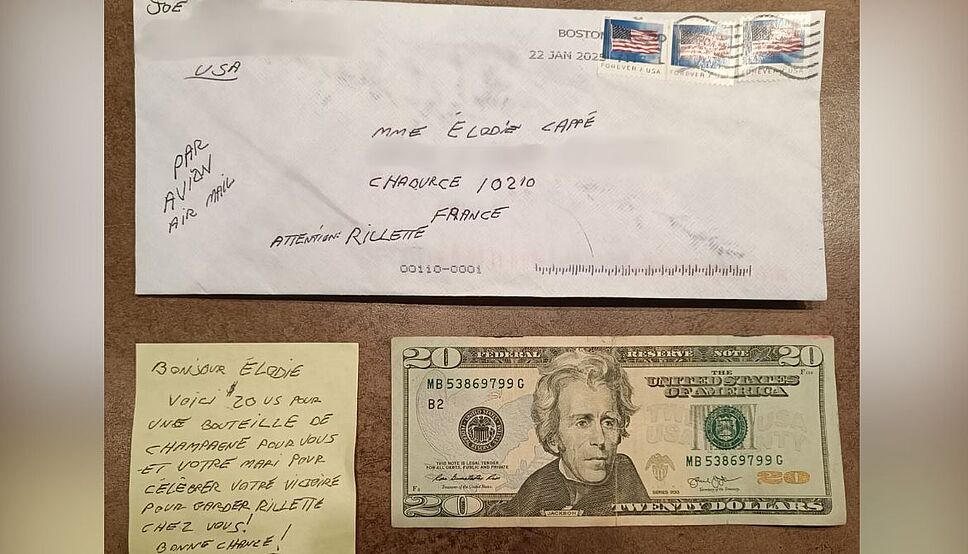 JOE
USA
BOSTON
22 JAN 2025
FOREVER / USA
FOREVER / USA
FOREVER / USA
PAR
AVION
AIR MAIL
MME ÉLODIE CAPPÉ
CHAOURCE 10210
FRANCE
ATTENTION: RILLETTE
00110-0001
BONJOUR ÉLODIE
VOICI $20 US POUR
UNE BOUTEILLE DE
CHAMPAGNE POUR VOUS
ET VOTRE MARI POUR
CÉLÉBRER VOTRE VICTOIRE
POUR GARDER RILLETTE
CHEZ VOUS!
BONNE CHANCE!
20 FEDERAL RESERVE NOTE 20
THE
UNITED STATES
OF AMERICA
MB 53869799 G
B2
THIS NOTE IS LEGAL TENDER
FOR ALL DEBTS, PUBLIC AND PRIVATE
MB 53869799 G
20
Treasurer of the United States
SERIES 2013
Secretary of the Treasury
JACKSON
20 TWENTY DOLLARS